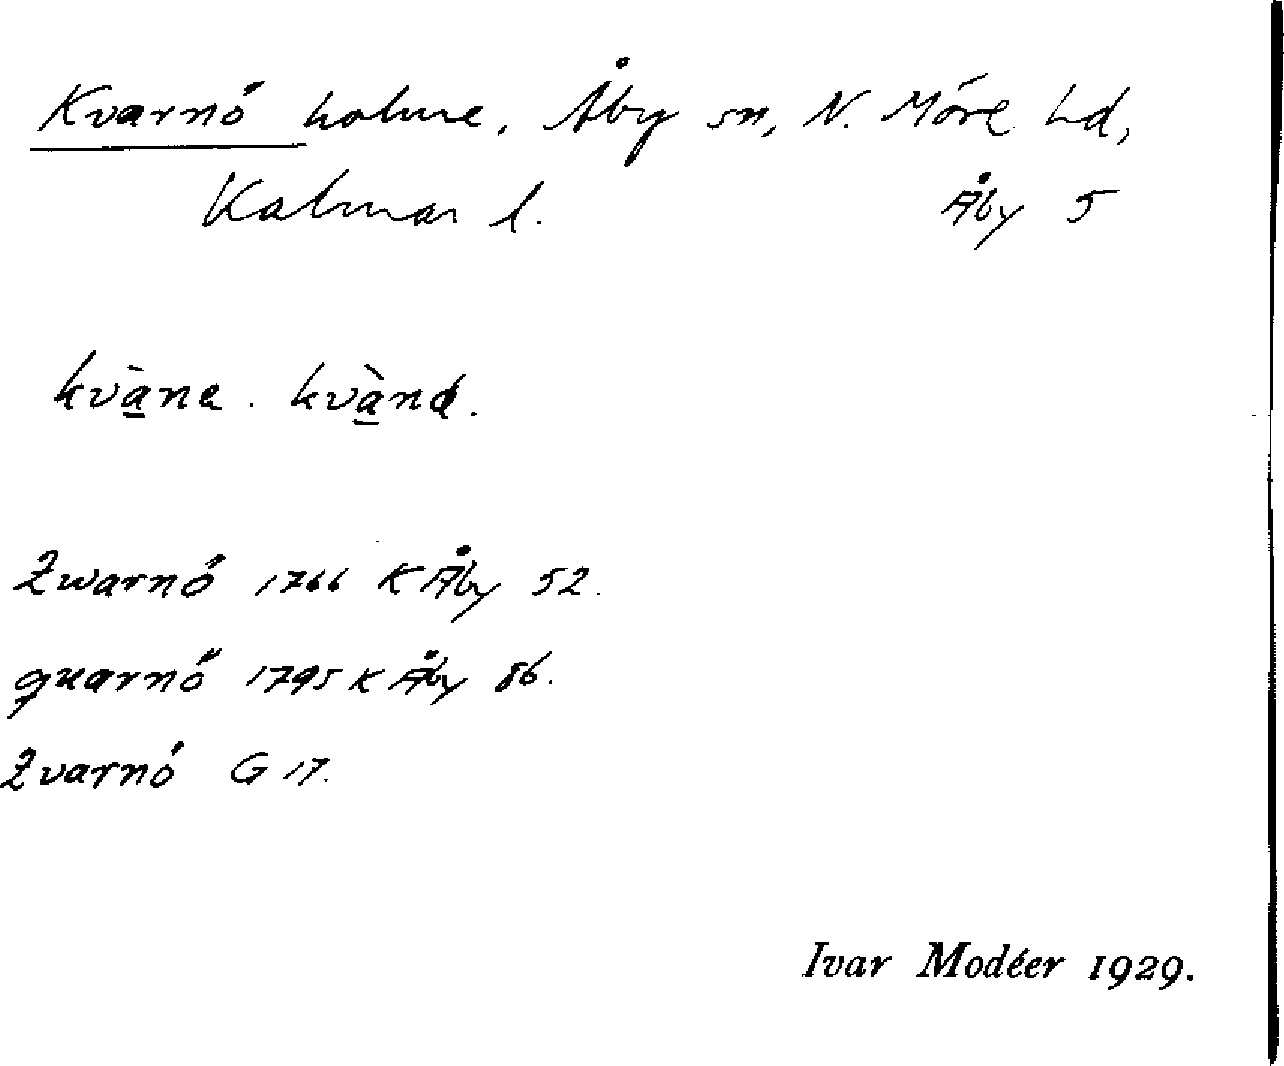 Kvarnö holme, Åby sn, N. Möre hd,
Kalmar l. Åby 5
kvàne. kvànd.
Qwarnö 1766 K Åby 52.
quarnö 1795 K Åby 86.
Qvarnö G 17.
Ivar Modéer 1929.